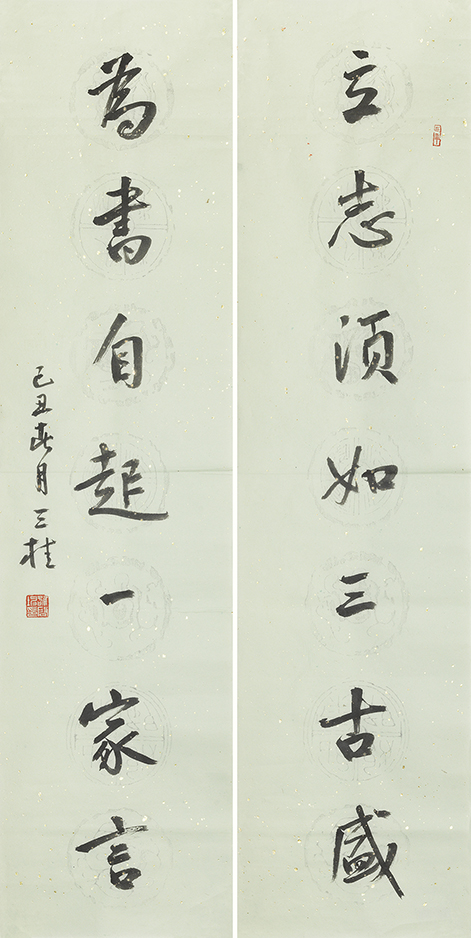 立志须如三古盛
為書自起一家言
己丑春月三桂